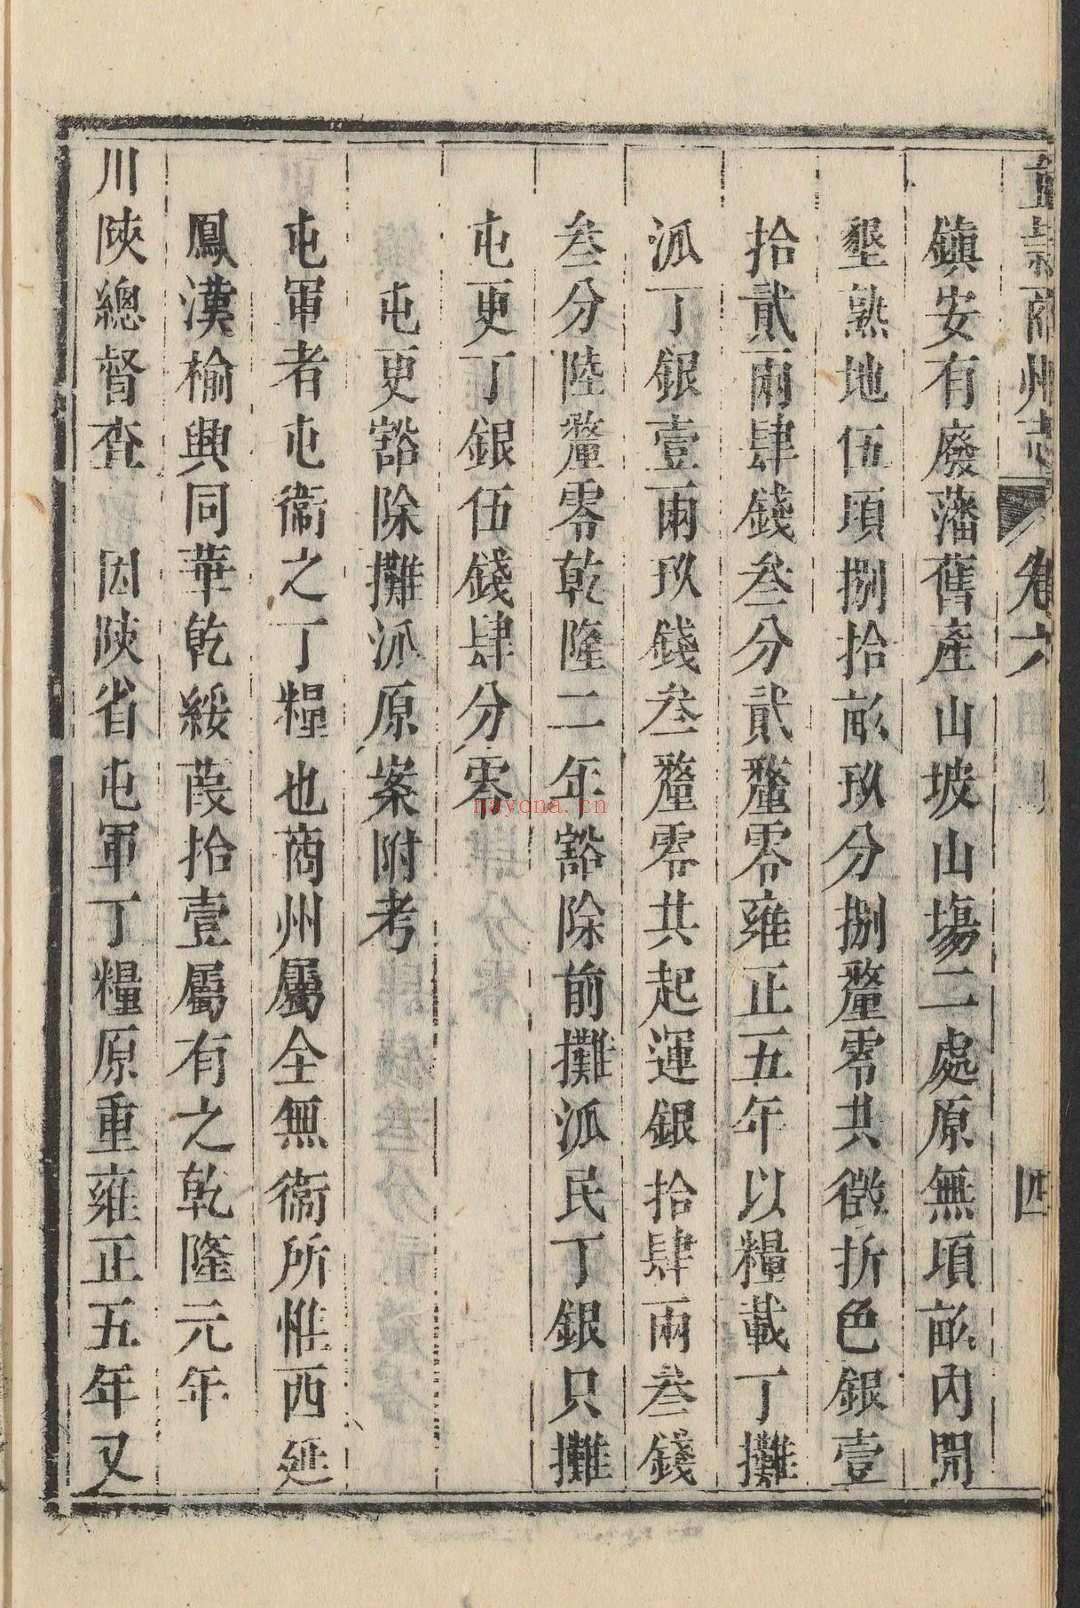 直隸商州志 卷六 四
鎮安有廢藩舊產山坡山塲二處原無項畝內開
墾熟地伍頃捌拾畝玖分捌釐零共徵折色銀壹
拾貳兩肆錢叁分貳釐零雍正五年以糧載丁攤
派丁銀壹兩玖錢叁釐零共起運銀拾肆兩叁錢
叁分陸釐零乾隆二年豁除前攤派民丁銀只攤
屯更丁銀伍錢肆分零
屯更豁除攤派原案附考
屯軍者屯衞之丁糧也商州屬全無衞所惟西延
鳳漢榆興同華乾綏葭拾壹屬有之乾隆元年
川陝總督查 因陝省屯軍丁糧原重雍正五年又
nayona.cn